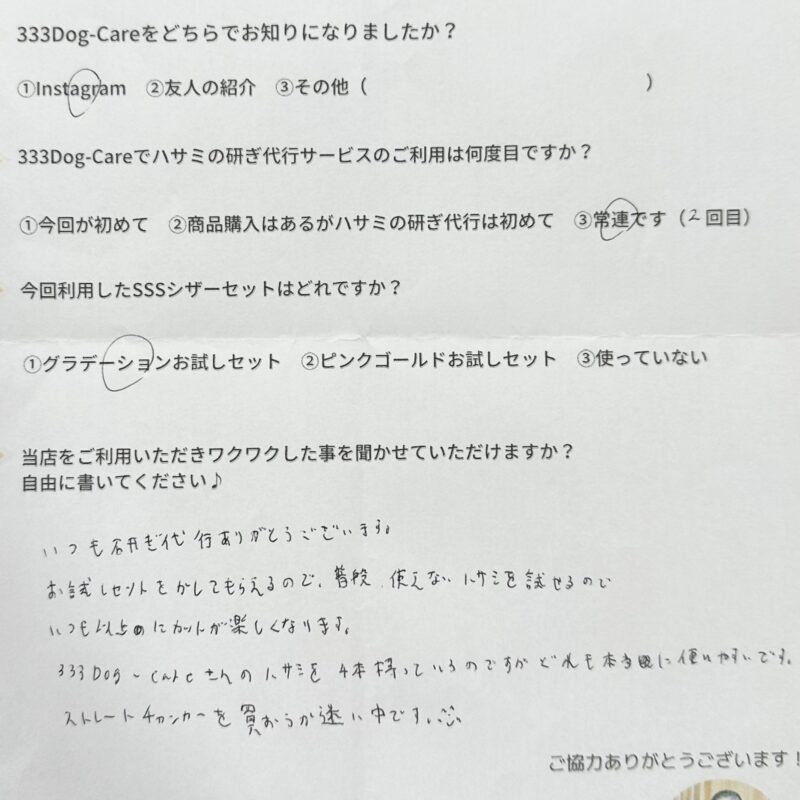 333Dog-Careをどちらでお知りになりましたか？
①Instagram ②友人の紹介 ③その他（ ）
333Dog-Careでハサミの研ぎ代行サービスのご利用は何度目ですか？
①今回が初めて ②商品購入はあるがハサミの研ぎ代行は初めて ③常連です（2回目）
今回利用したSSSシザーセットはどれですか？
①グラデーションお試しセット ②ピンクゴールドお試しセット ③使っていない
当店をご利用いただきワクワクした事を聞かせていただけますか？
自由に書いてください♪
いつも研ぎ代行ありがとうございます。
お試しセットをかしてもらえるので、普段、使えないハサミを試せるので
いつも以上にカットが楽しくなります。
333Dog-Careさんのハサミを4本持っているのですがどれも本当に使いやすいです。
ストレートチャンカーを買おうか迷い中です。
ご協力ありがとうございます！